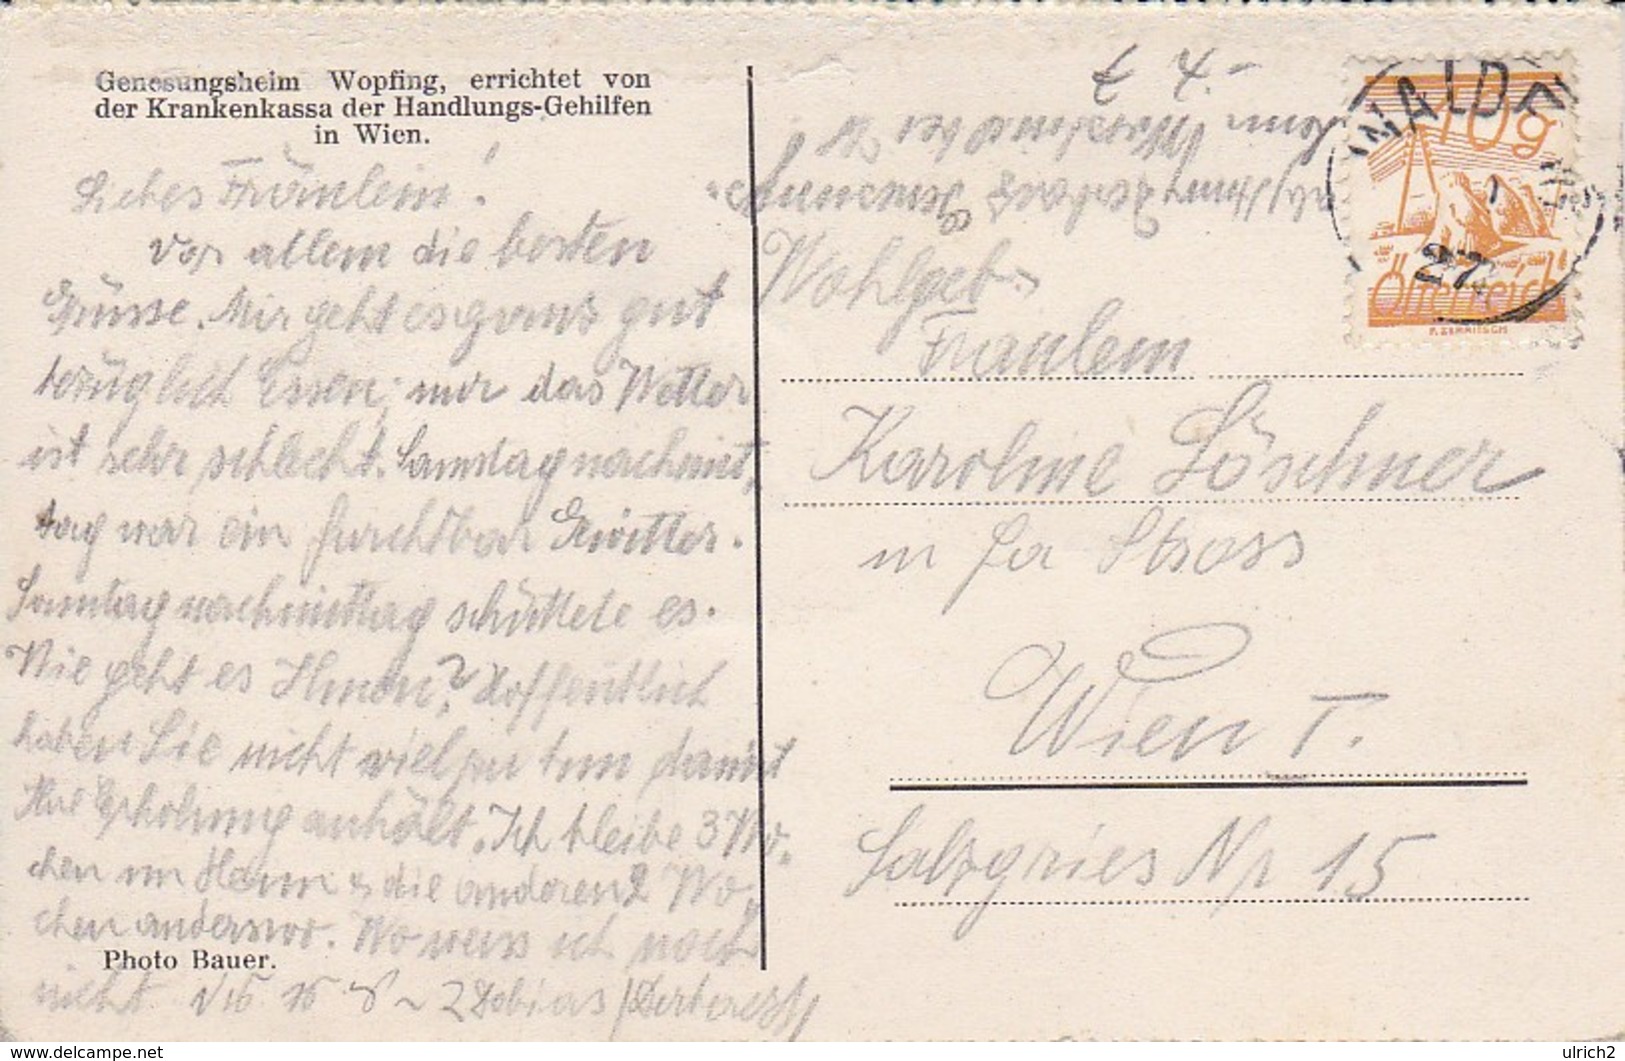 Genesungsheim Wopfing, errichtet von
der Krankenkassa der Handlungs-Gehilfen
in Wien.
Liebes Fräulein!
Vor allem die besten
Grüsse. Mir geht es ganz gut
bezüglich Essen, nur das Wetter
ist sehr schlecht. Samstag nachmit,
tag war ein furchtbar Gewitter.
Sonntag nachmittag schüttete es.
Wie geht es Ihnen? Hoffentlich
haben Sie nicht viel zu tun damit
Ihre Erholung anhält. Ich bleibe 3 Wo,
chen im Heim & die anderen 2 Wo,
chen anderswo. Wo weiss ich noch
nicht
Photo Bauer.
€ 4.-
Wohlgeb.
Fräulein
Karoline Löschner
in Fa Strass
Wien I.
Salzgries Nr 15
WALD
27
10g
Österreich
ulrich2